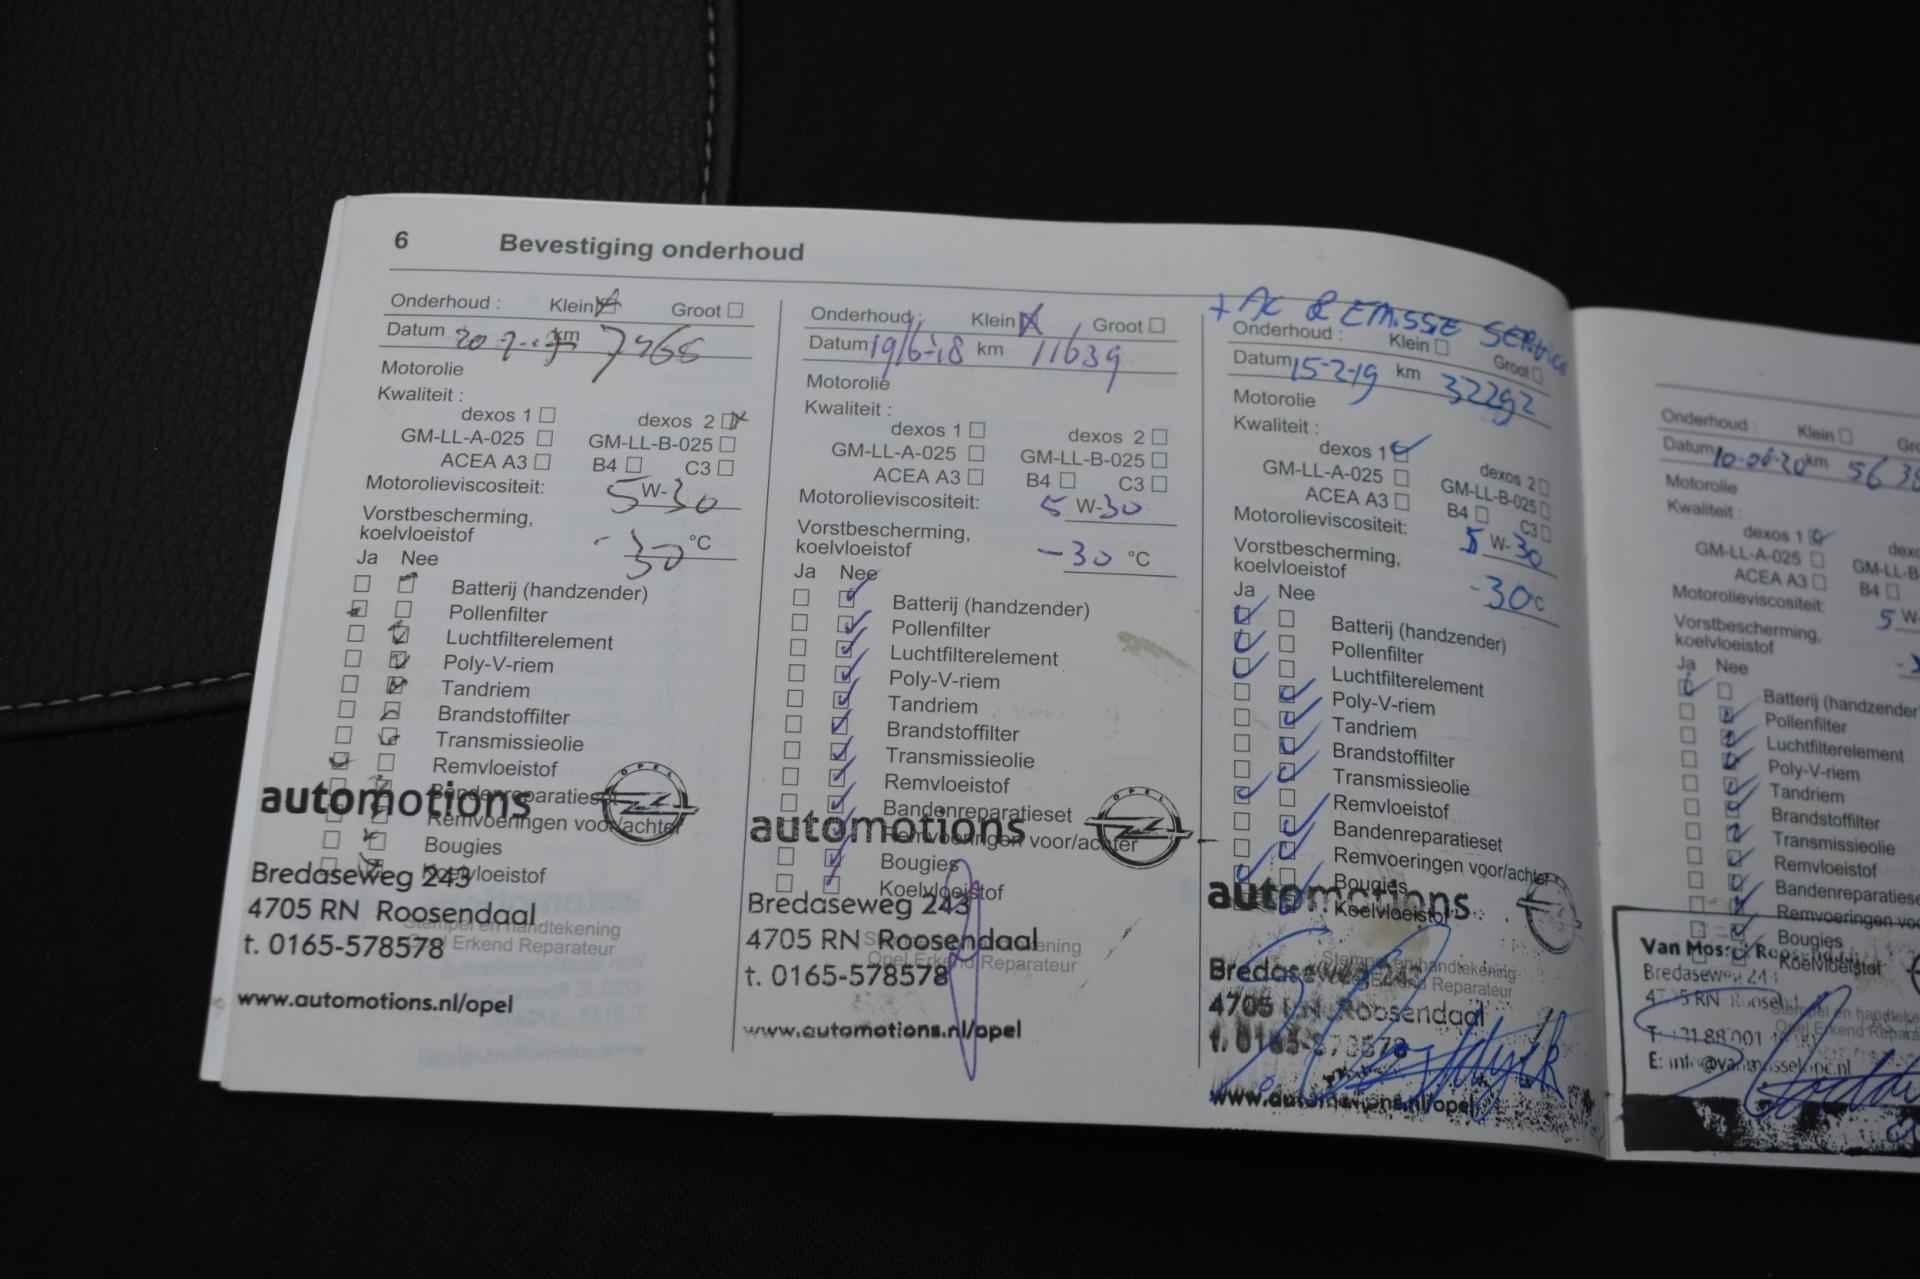 6 Bevestiging onderhoud
Onderhoud : Klein Groot
Datum km 7468
Motorolie
Kwaliteit :
dexos 1 dexos 2
GM-LL-A-025 GM-LL-B-025
ACEA A3 B4 C3
Motorolieviscositeit: 5 W-30
Vorstbescherming,
koelvloeistof -30 °C
Ja Nee
Batterij (handzender)
Pollenfilter
Luchtfilterelement
Poly-V-riem
Tandriem
Brandstoffilter
Transmissieolie
Remvloeistof
Bandenreparatieset
Remvoeringen voor/achter
Bougies
Koelvloeistof
OPEL
automotions
Bredaseweg 243
4705 RN Roosendaal
Stempel en handtekening
Opel Erkend Reparateur
t. 0165-578578
www.automotions.nl/opel
Onderhoud : Klein Groot
Datum 19/6-'18 km 11639
Motorolie
Kwaliteit :
dexos 1 dexos 2
GM-LL-A-025 GM-LL-B-025
ACEA A3 B4 C3
Motorolieviscositeit: 5 W-30
Vorstbescherming,
koelvloeistof -30 °C
Ja Nee
Batterij (handzender)
Pollenfilter
Luchtfilterelement
Poly-V-riem
Tandriem
Brandstoffilter
Transmissieolie
Remvloeistof
Bandenreparatieset
Remvoeringen voor/achter
Bougies
Koelvloeistof
OPEL
automotions
Bredaseweg 243
4705 RN Roosendaal
Stempel en handtekening
Opel Erkend Reparateur
t. 0165-578578
www.automotions.nl/opel
+ AC & EMISSIE SERVICE
Onderhoud : Klein Groot
Datum 15-2-19 km 32292
Motorolie
Kwaliteit :
dexos 1 dexos 2
GM-LL-A-025 GM-LL-B-025
ACEA A3 B4 C3
Motorolieviscositeit: 5 W-30
Vorstbescherming,
koelvloeistof -30 °C
Ja Nee
Batterij (handzender)
Pollenfilter
Luchtfilterelement
Poly-V-riem
Tandriem
Brandstoffilter
Transmissieolie
Remvloeistof
Bandenreparatieset
Remvoeringen voor/achter
Bougies
Koelvloeistof
automotions
Bredaseweg 243
4705 RN Roosendaal
Stempel en handtekening
Opel Erkend Reparateur
t. 0165-578578
www.automotions.nl/opel
Onderhoud : Klein
Datum km 5638
Motorolie
Kwaliteit :
dexos 1
GM-LL-A-025 GM-LL-B
ACEA A3 B4
Motorolieviscositeit: 5 W-
Vorstbescherming,
koelvloeistof
Ja Nee
Batterij (handzender
Pollenfilter
Luchtfilterelement
Poly-V-riem
Tandriem
Brandstoffilter
Transmissieolie
Remvloeistof
Bandenreparatiese
Remvoeringen voo
Bougies
Koelvloeistof
Van Mossel
Bredaseweg
4705 RN
Stempel en handteke
Opel Erkend Repara